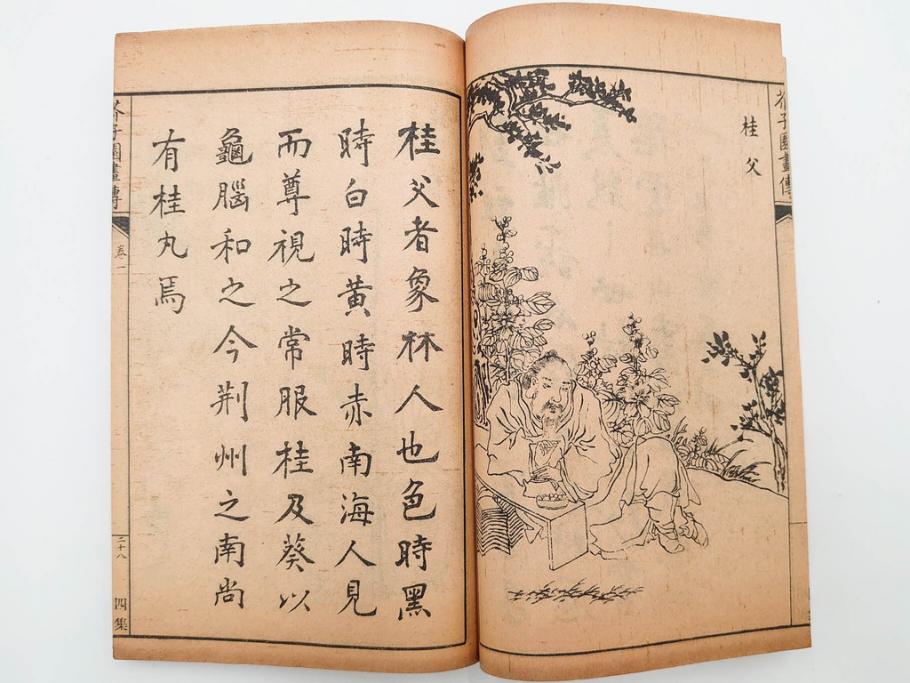 芥子園畫傳
桂父
桂父者象林人也色時黑
時白時黃時赤南海人見
而尊視之常服桂及葵以
龜腦和之今荆州之南尚
有桂丸焉
芥子園畫傳
卷一
二十八
四集